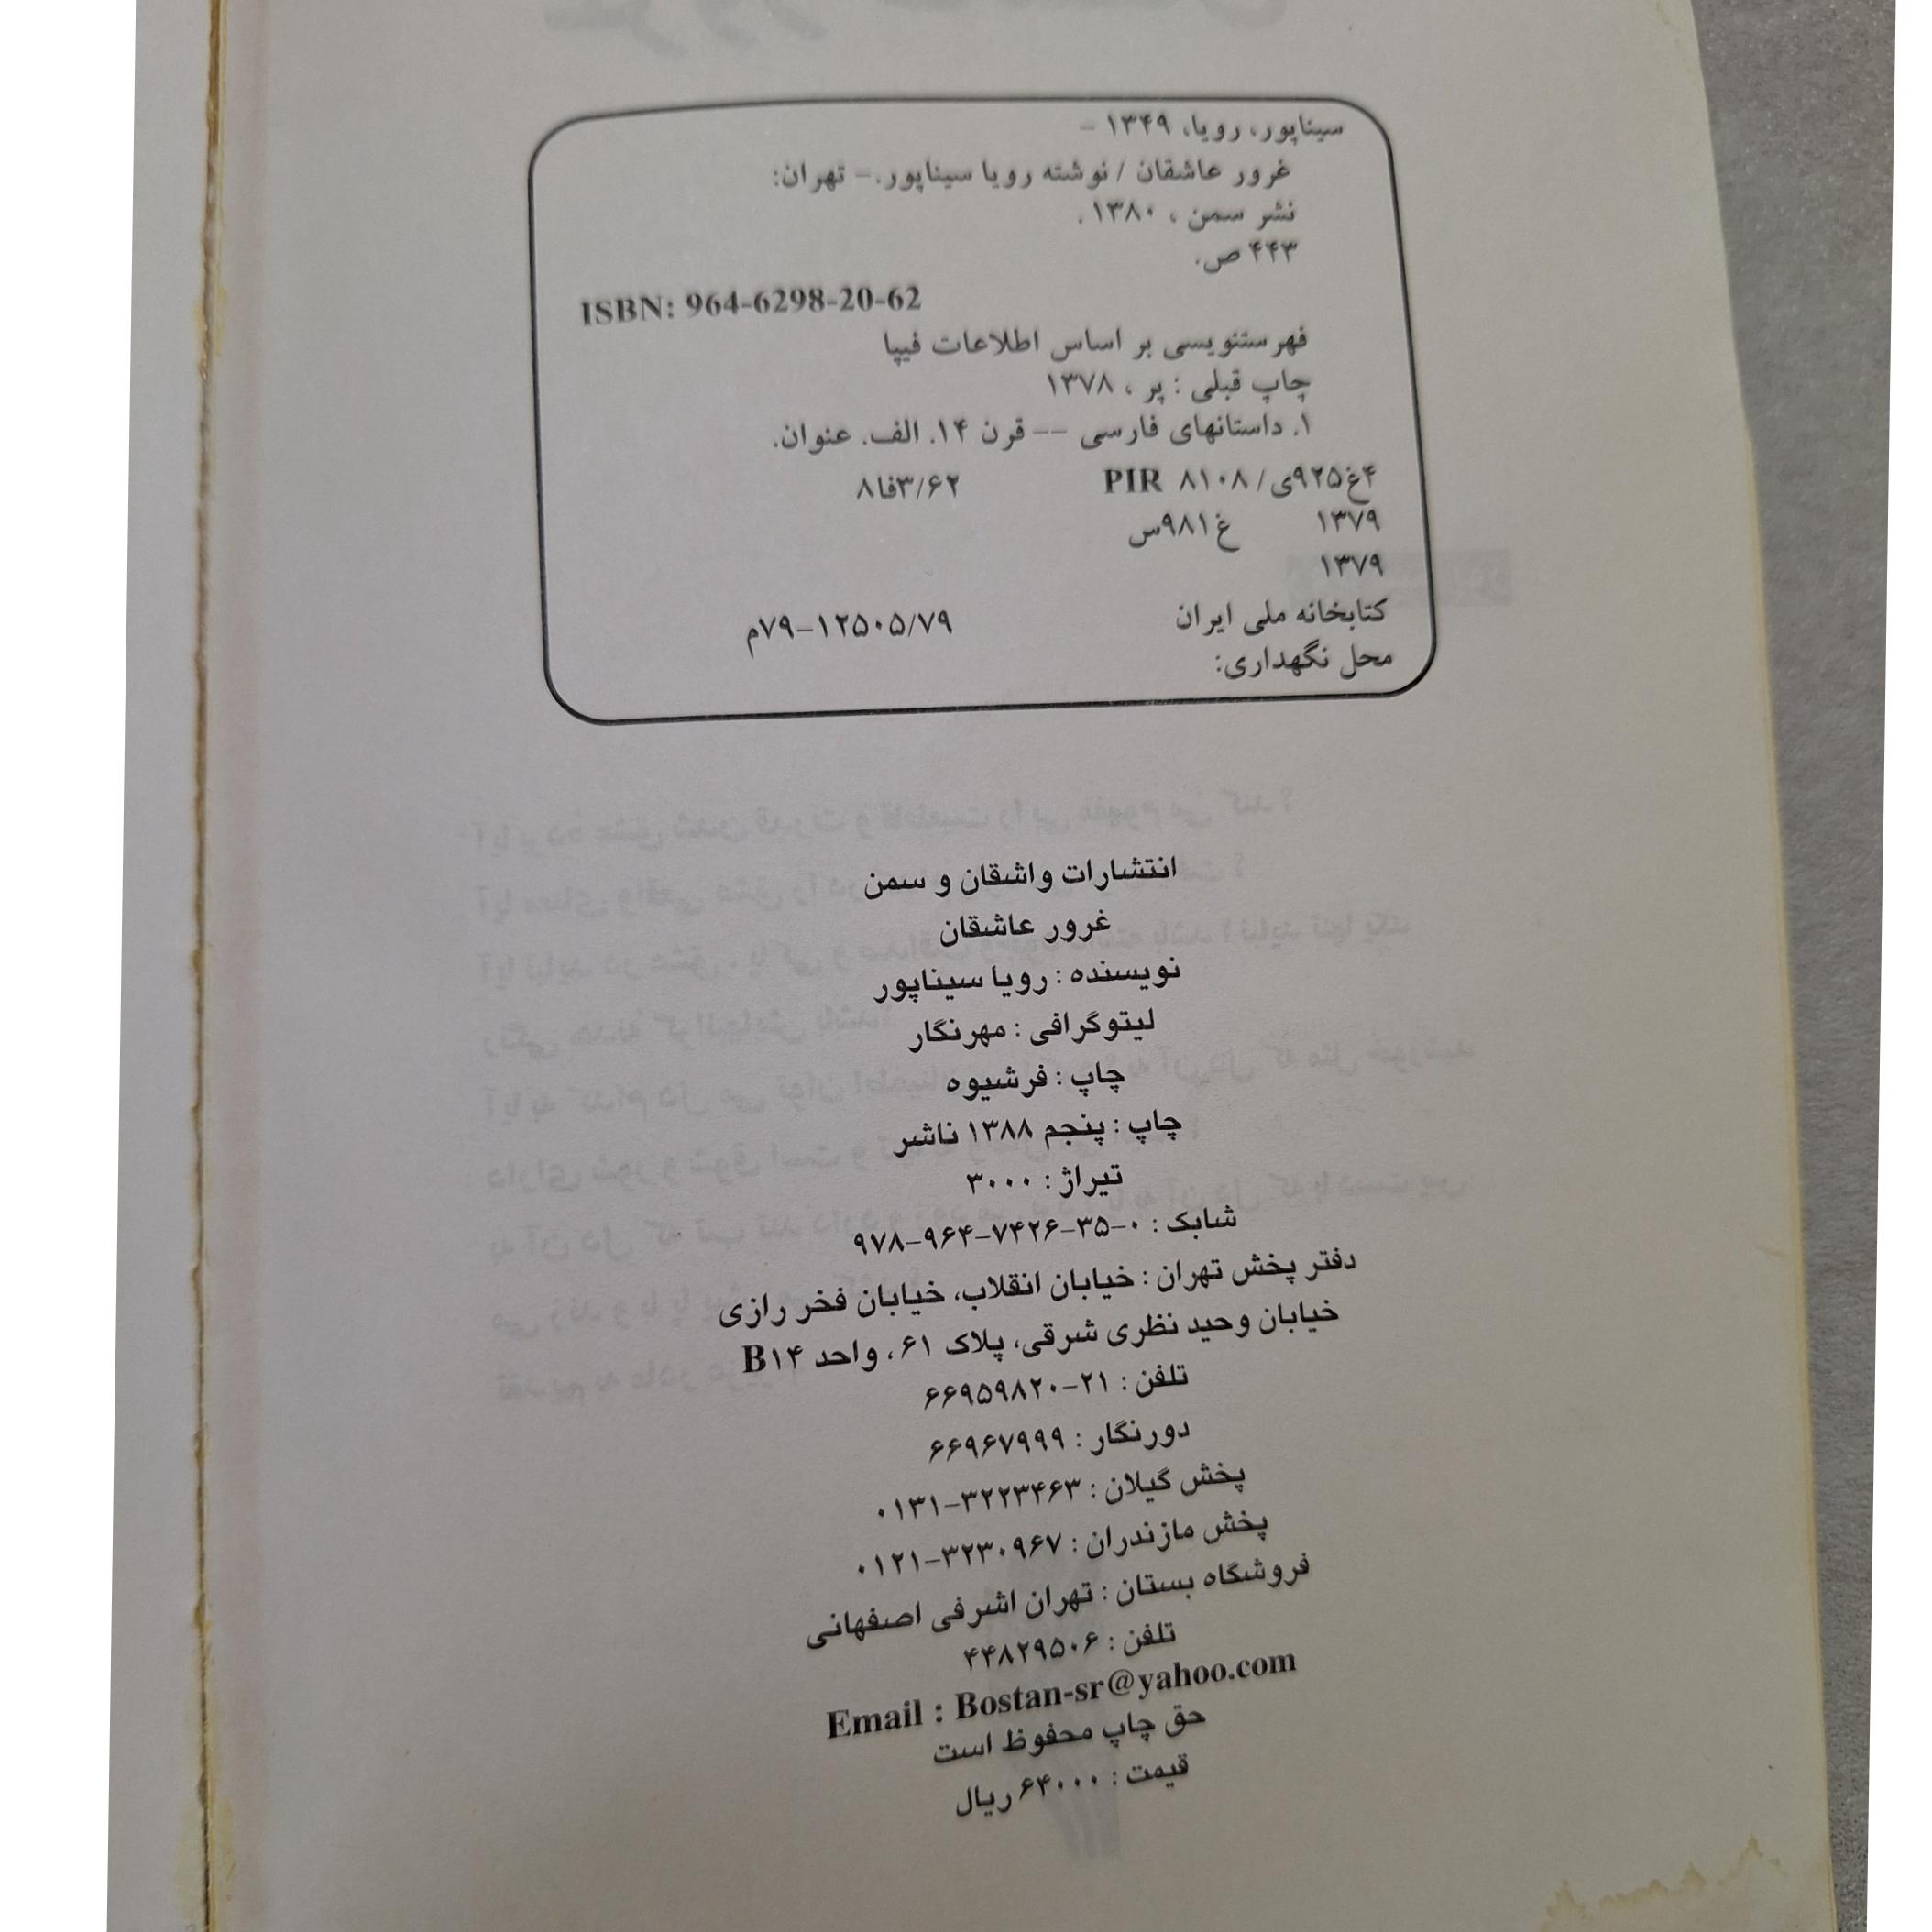 سیناپور، رویا، ۱۳۴۹ –
غرور عاشقان / نوشته رویا سیناپور.– تهران:
نشر سمن ، ۱۳۸۰.
۴۴۳ ص.
ISBN: 964-6298-20-62
فهرستنویسی بر اساس اطلاعات فیپا
چاپ قبلی : پر ، ۱۳۷۸
۱. داستانهای فارسی -- قرن ۱۴. الف. عنوان.
۴غ۹۲۵ی/ PIR ۸۱۰۸ ۸فا۳/۶۲
۱۳۷۹ غ۹۸۱س
۱۳۷۹
کتابخانه ملی ایران ۷۹/۱۲۵۰۵–۷۹م
محل نگهداری:
انتشارات واشقان و سمن
غرور عاشقان
نویسنده : رویا سیناپور
لیتوگرافی : مهرنگار
چاپ : فرشیوه
چاپ : پنجم ۱۳۸۸ ناشر
تیراژ : ۳۰۰۰
شابک : ۰-۳۵-۷۴۲۶-۹۶۴-۹۷۸
دفتر پخش تهران : خیابان انقلاب، خیابان فخر رازی
خیابان وحید نظری شرقی، پلاک ۶۱، واحد B۱۴
تلفن : ۲۱-۶۶۹۵۹۸۲۰
دورنگار : ۶۶۹۶۷۹۹۹
پخش گیلان : ۳۲۲۳۴۶۳-۰۱۳۱
پخش مازندران : ۳۲۳۰۹۶۷-۰۱۲۱
فروشگاه بستان : تهران اشرفی اصفهانی
تلفن : ۴۴۸۲۹۵۰۶
Email : Bostan-sr@yahoo.com
حق چاپ محفوظ است
قیمت : ۶۴۰۰۰ ریال